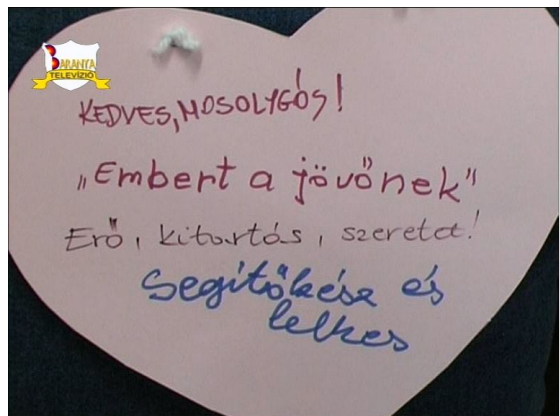 BARANYA
TELEVÍZIÓ
KEDVES, MOSOLYGÓS!
„Embert a jövőnek"
Erő, kitartás, szeretet!
Segítőkész és
lelkes